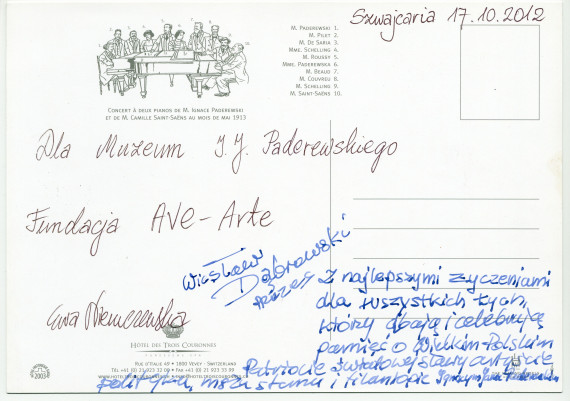 Szwajcaria 17.10.2012
M. PADEREWSKI 1.
M. PILET 2.
M. DE SARIA 3.
MME. SCHELLING 4.
M. ROUSSY 5.
MME. PADEREWSKA 6.
M. BEAUD 7.
M. COUVREU 8.
M. SCHELLING 9.
M. SAINT-SAËNS 10.
CONCERT À DEUX PIANOS DE M. IGNACE PADEREWSKI
ET DE M. CAMILLE SAINT-SAËNS AU MOIS DE MAI 1913
Dla Muzeum I. J. Paderewskiego
Fundacja AVE-Arte
Wiesław
Dąbrowski
prezes
Ewa Niemczewska
Z najlepszymi życzeniami
dla wszystkich tych,
którzy dbają i celebrują
pamięć o Wielkim Polskim
Patriocie światowej sławy artyście
polityku, mężu stanu i filantropie Ignacym Janie Paderewskim
HOTEL DES TROIS COURONNES
RUE D'ITALIE 49 • 1800 VEVEY - SWITZERLAND
TEL +41 (0) 21 923 32 00 • FAX +41 (0) 21 923 33 99
2003